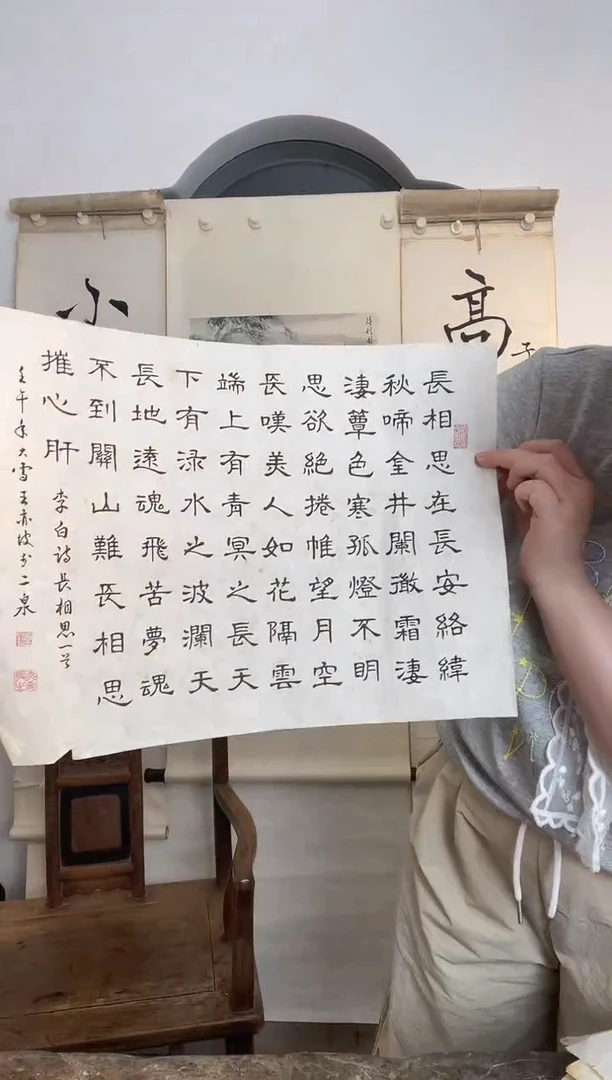 長相思在長安絡緯
秋啼金井闌微霜淒
淒簟色寒孤燈不明
思欲絕捲帷望月空
長嘆美人如花隔雲
端上有青冥之長天
下有淥水之波瀾天
長地遠魂飛苦夢魂
不到關山難長相思
摧心肝
李白詩長相思一首
壬午年大雪王赤坡於二泉
高